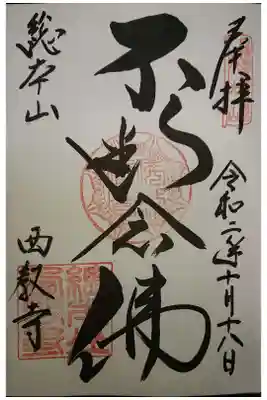 奉拝
令和二年十月十八日
不断念佛
總本山
西教寺